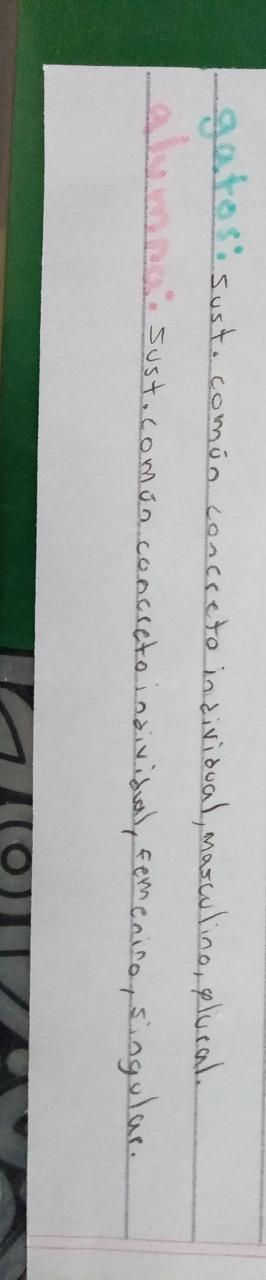 gatos: sust. común concreto individual, masculino, plural.
alumna: sust. común concreto individual, femenino, singular.